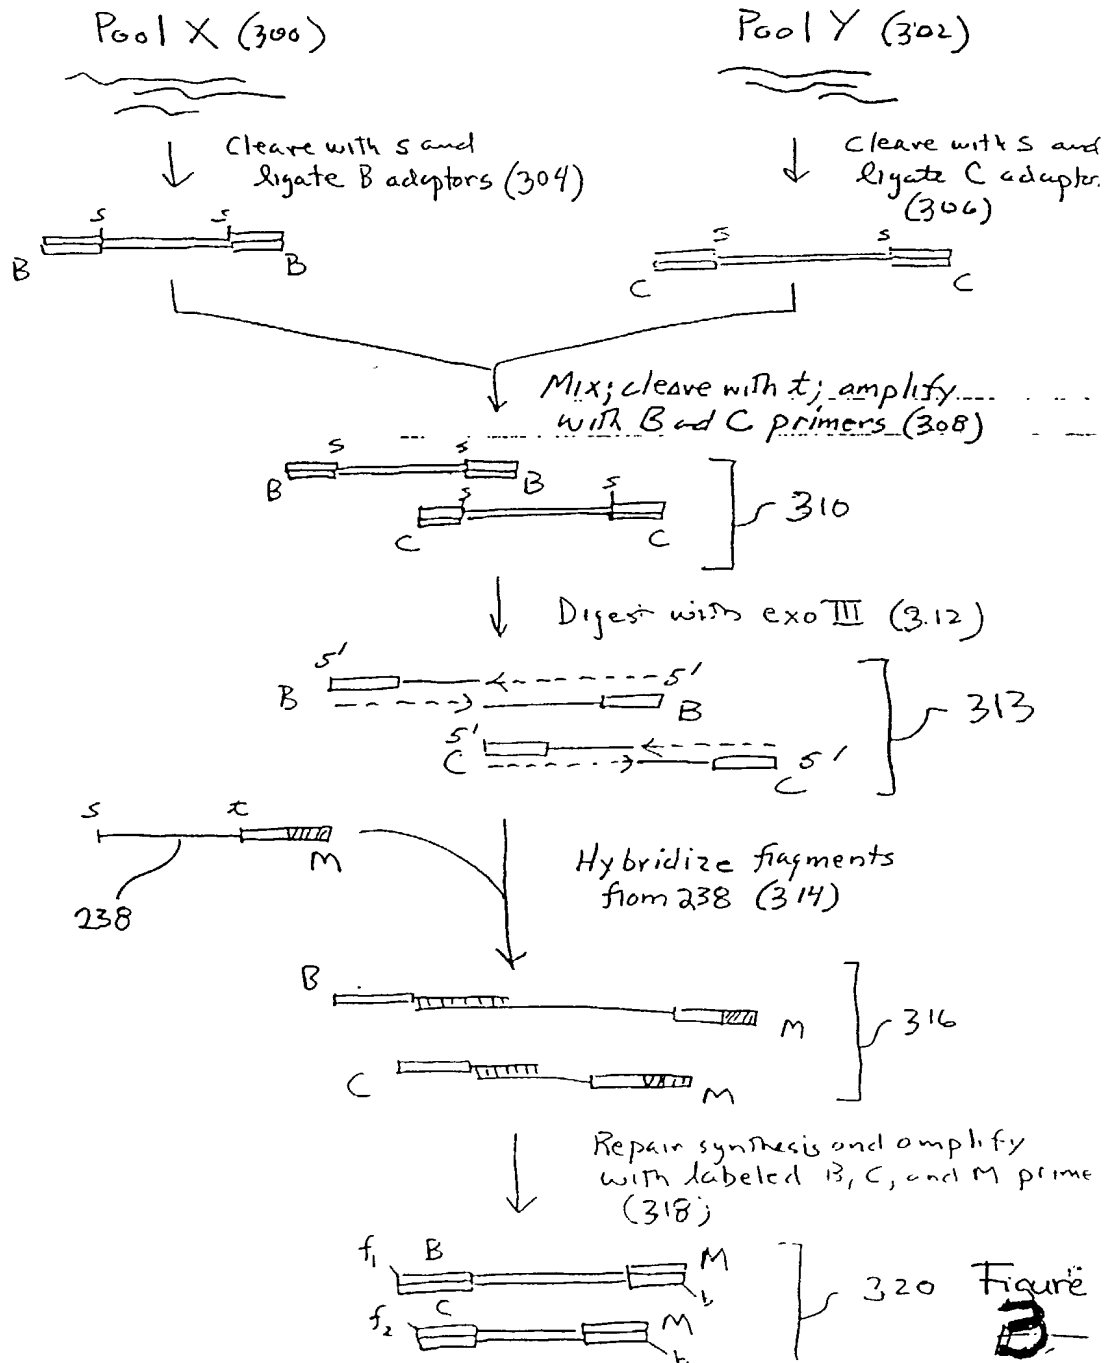 Pool X (300)
Pool Y (302)
Cleave with s and
ligate B adaptors (304)
Cleave with s and
ligate C adaptor
(306)
s s
B B
s s
C C
Mix; cleave with t; amplify
with B and C primers (308)
s s
B B
s s
C C
310
Digest with exo III (3.12)
5' 5'
B B
5'
C C 5'
313
s t
M
238
Hybridize fragments
from 238 (314)
B
M
C
M
316
Repair synthesis and amplify
with labeled B, C, and M prime
(318)
f1 B M
b
f2 C M
320
Figure
3